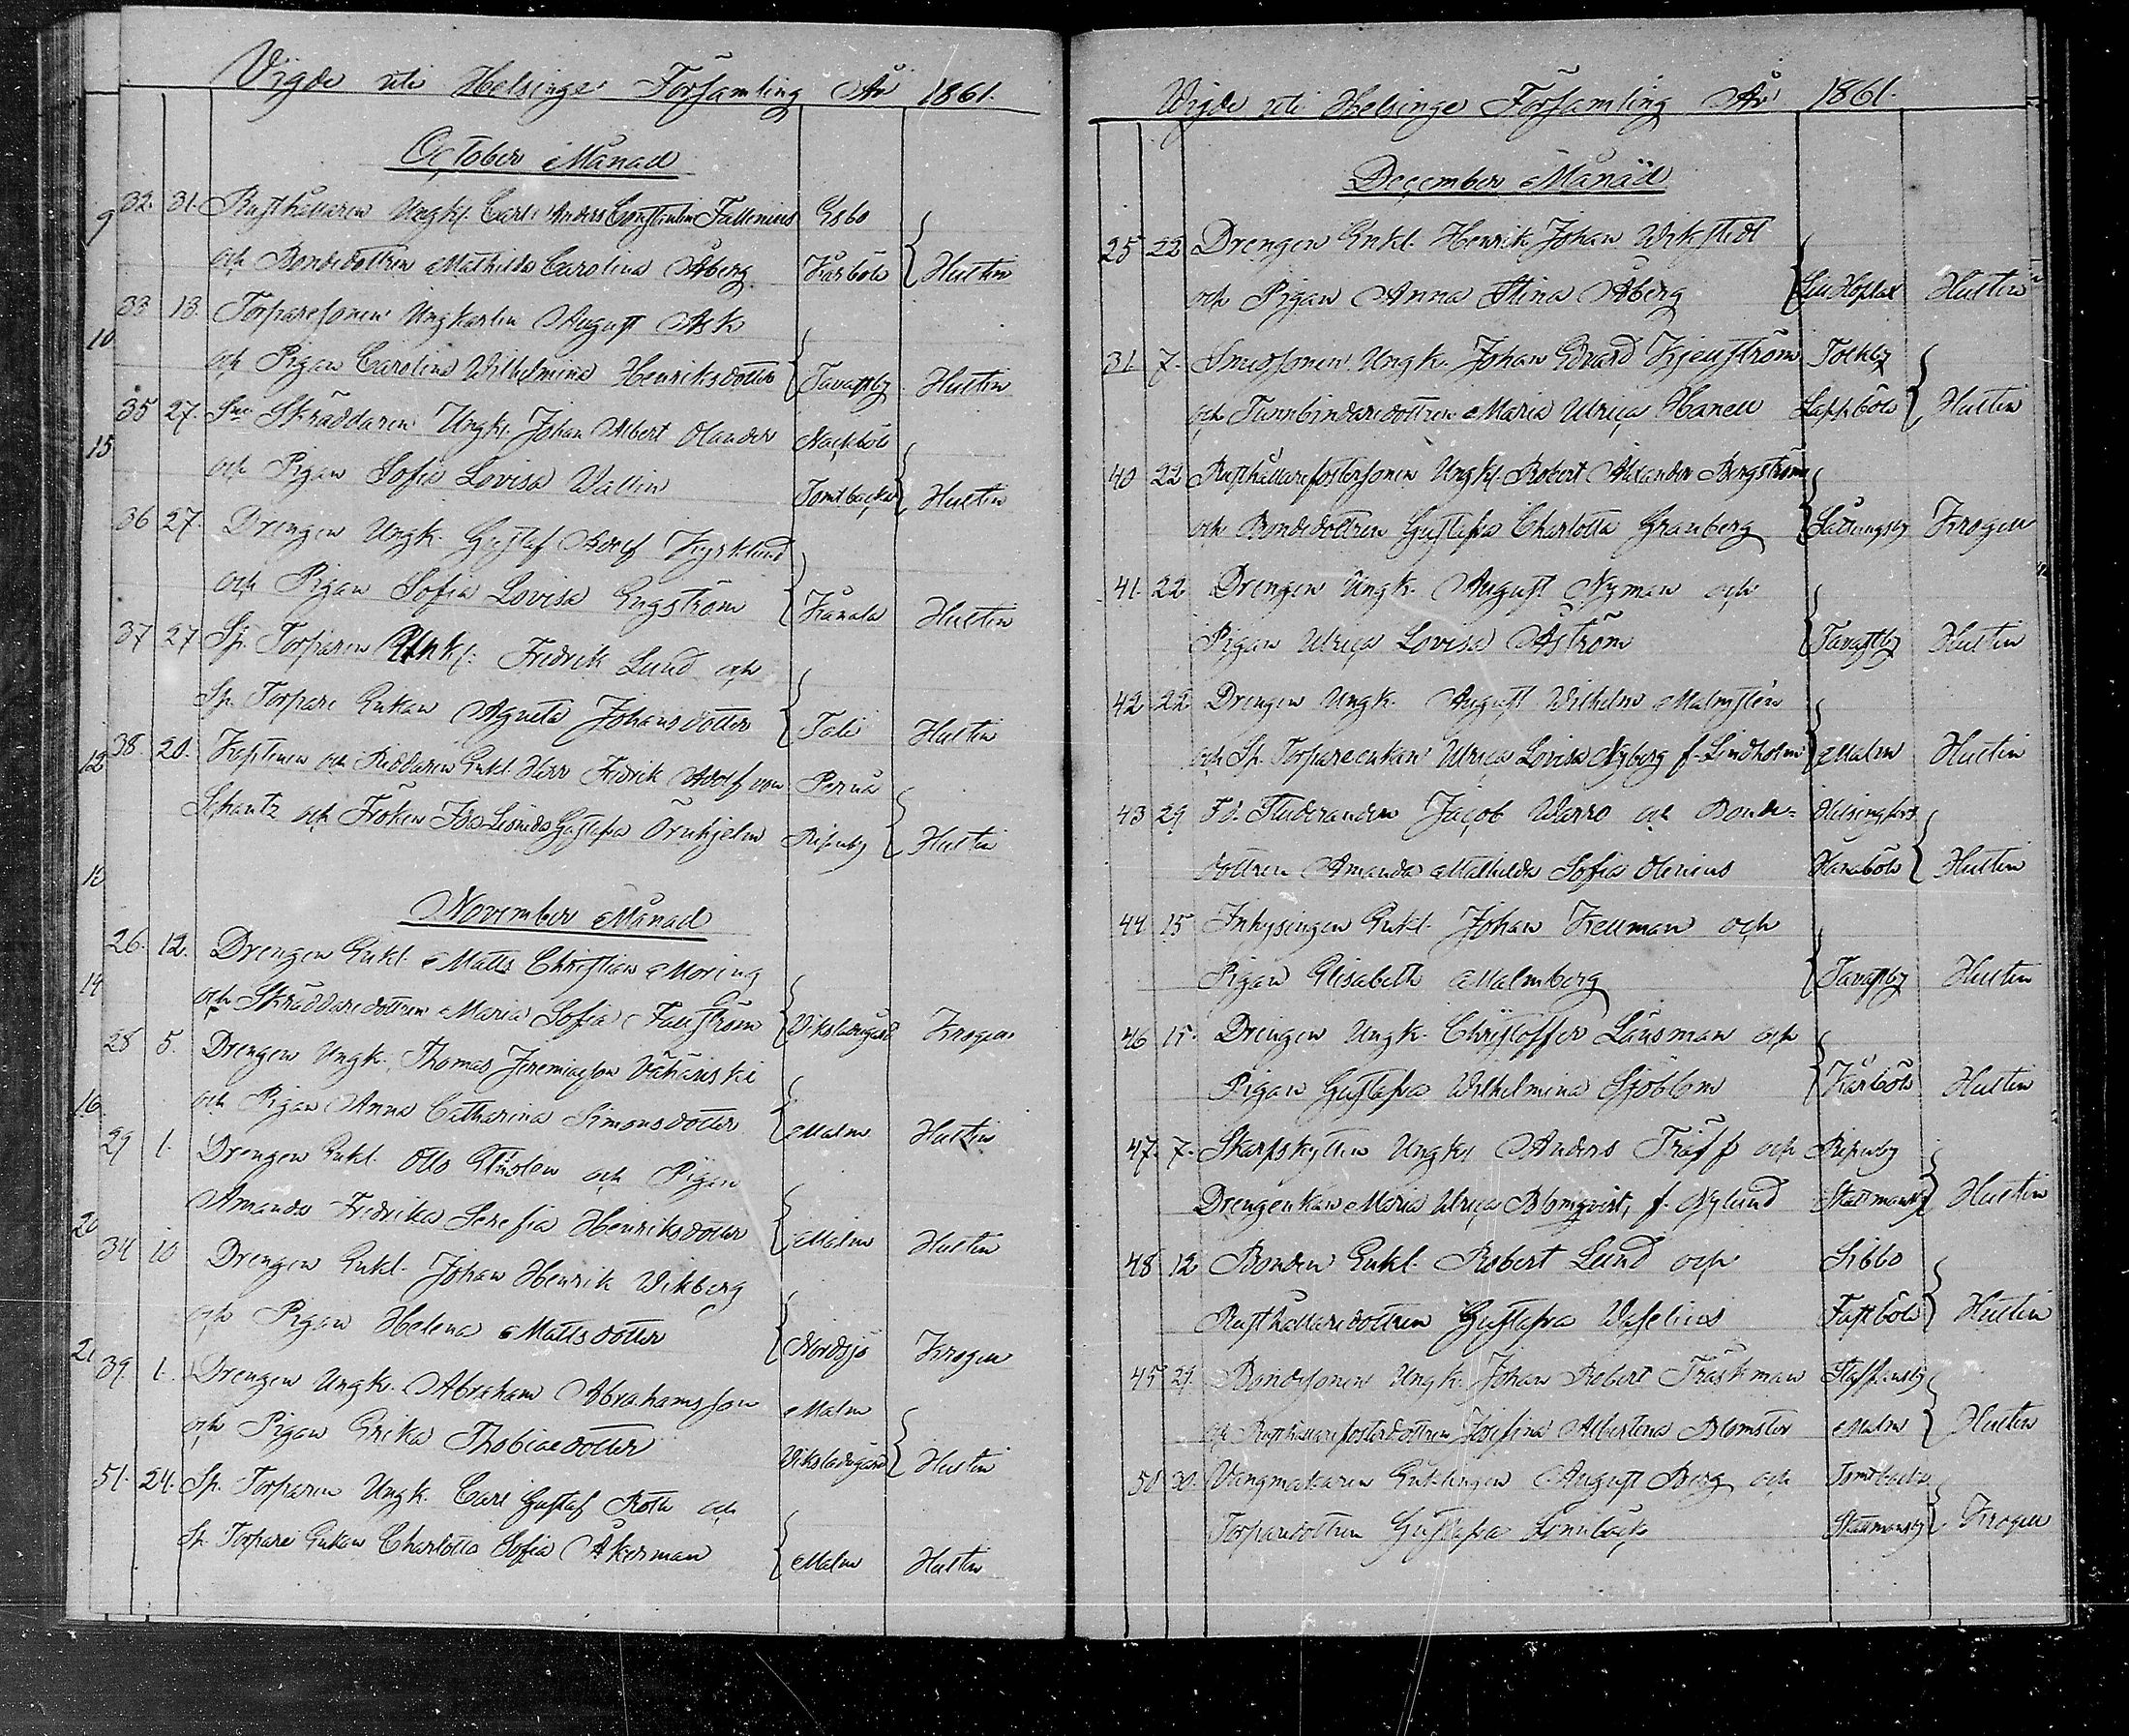 Vigde uti Helsinge Församling År 1861.
October Månad
32. 31. Rusthållaren Ungk. Carl Anders Constantin Fallenius Esbo
och Bondedottren Mathilda Carolina Åberg Kårböle Hultin
33 13. Torparesonen Ungkarlen August Ask
och Pigan Carolina Wilhelmina Henriksdotter Tavastby Hultin
35 27. Skräddaren Ungk. Johan Albert Olander Nackböle
och Pigan Sofia Lovisa Wallin Tomtbacka Hultin
36 27. Drengen Ungk. Gustaf Adolf Kyrklund
och Pigan Sofia Lovisa Engström Kånala Hultin
37 27 Sp. Torparen Enkl. Fredrik Lund och
Sp. Torpare Enkan Agneta Johansdotter Tali Hultin
38. 20. Kaptenen och Riddaren Enkl. Herr Fredrik Adolf von Pernå
Schantz och Fröken Ida Leonida Gustafva Örnhjelm Ripuby Hultin
November Månad
26. 12. Drengen Enkl. Matts Christian Moring
och Skräddaredottren Maria Sofia Fallström Viksbdegård Krogell
28 5. Drengen Ungk. Thomas Jeremiasson
och Pigan Anna Catharina Simonsdotter Malm Hultin
29 1. Drengen Enkl. Otto och Pigan
Amanda Fredrika Serefia Henriksdotter Malm Hultin
34 10 Drengen Enkl. Johan Henrik Vikberg
och Pigan Helena Mattsdotter Nordsjö Krogell
39. 1. Drengen Ungk. Abraham Abrahamsson Malm
och Pigan Erika Thobiaedotter Hultin
51. 24. Sp. Torparen Ungk. Carl Gustaf Roth och
Sp. Torpare Enkan Charlotta Sofia Åkerman Malm Hultin
Vigde uti Helsinge Församling År 1861.
December Månad
25 22 Drengen Enkl. Henrik Johan Wikstedt
och Pigan Anna Stina Åberg Hultin
31. 7. Smedsonen Ungk. Johan Edvard Kjellström Tolkby
och Tunnbindaredottren Maria Ulrica Hanell Lappböle Hultin
40 22 Rusthållarefostersonen Ungk. Robert Alexander Bergström
och Bondedottren Gustafva Charlotta Granberg Sottungsby Krogell
41. 22 Drengen Ungk. August Nyman och
Pigan Ulrica Lovisa Åström Tavastby Hultin
42 22 Drengen Ungk. August Wilhelm Malmsten
och Sp. Torpareenkan Ulrica Lovisa Nyberg f. Lindholm Malm Hultin
43 29 Fd. Studeranden Jacob Warro och Bonde= Helsingfors
dottren Amanda Mathilda Sofia Olenius Hanaböle Hultin
44 15 Inhysingen Enkl. Johan Kellman och
Pigan Elisabeth Malmberg Tavastby Hultin
46 15. Drengen Ungk. Christoffer Länsman och
Pigan Gustafva Wilhelmina Sjöblom Kårböle Hultin
47. 7. Skarpskytten Ungk. Anders Träff och Ripuby
Drengenkan Maria Ulrica Blomqvist, f. Nylund Skattmansby Hultin
48 12 Bonden Enkl. Robert Lund och Sibbo
Rusthållaredottren Gustafva Waselius Fastböle Hultin
45 29. Bondesonen Ungk. Johan Robert Träskman Staffansby
och Rusthållarefosterdottren Josefina Albertina Blomster Malm Hultin
50 30. Vangmakaren Enklingen August Berg och Tomtbacka
Torparedottren Gustafva Lönnbäck Skattmansby Krogell